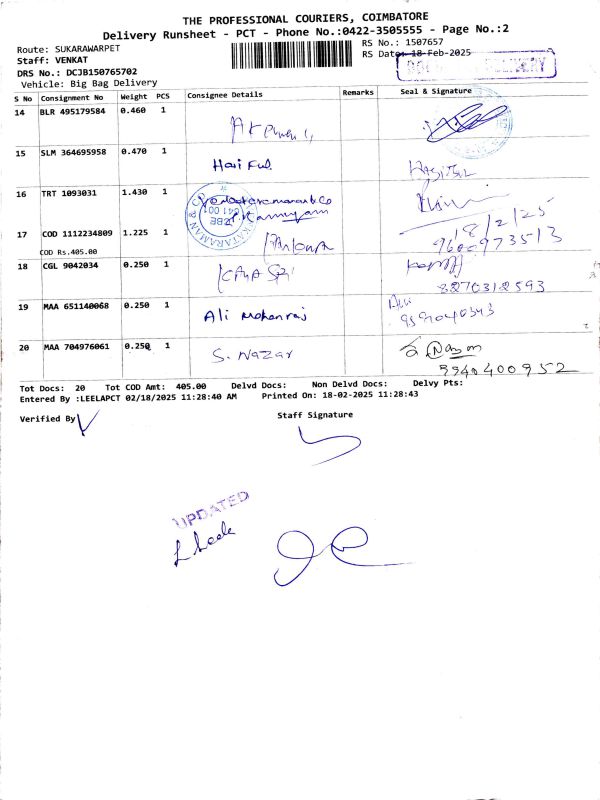 THE PROFESSIONAL COURIERS, COIMBATORE
Delivery Runsheet - PCT - Phone No.:0422-3505555 - Page No.:2
Route: SUKARAWARPET
Staff: VENKAT
DRS No.: DCJB150765702
Vehicle: Big Bag Delivery
RS No.: 1507657
RS Date: 18-Feb-2025
S No Consignment No Weight PCS Consignee Details Remarks Seal & Signature
14 BLR 495179584 0.460 1
15 SLM 364695958 0.470 1 Hari
16 TRT 1093031 1.430 1
18/2/25
17 COD 1112234809 1.225 1 9600973513
COD Rs.405.00
18 CGL 9042034 0.250 1
8270312593
19 MAA 651140068 0.250 1 Ali Mohanraj
20 MAA 704976061 0.250 1 S. Nazar
9940400952
Tot Docs: 20 Tot COD Amt: 405.00 Delvd Docs: Non Delvd Docs: Delvy Pts:
Entered By :LEELAPCT 02/18/2025 11:28:40 AM Printed On: 18-02-2025 11:28:43
Verified By
Staff Signature
UPDATED